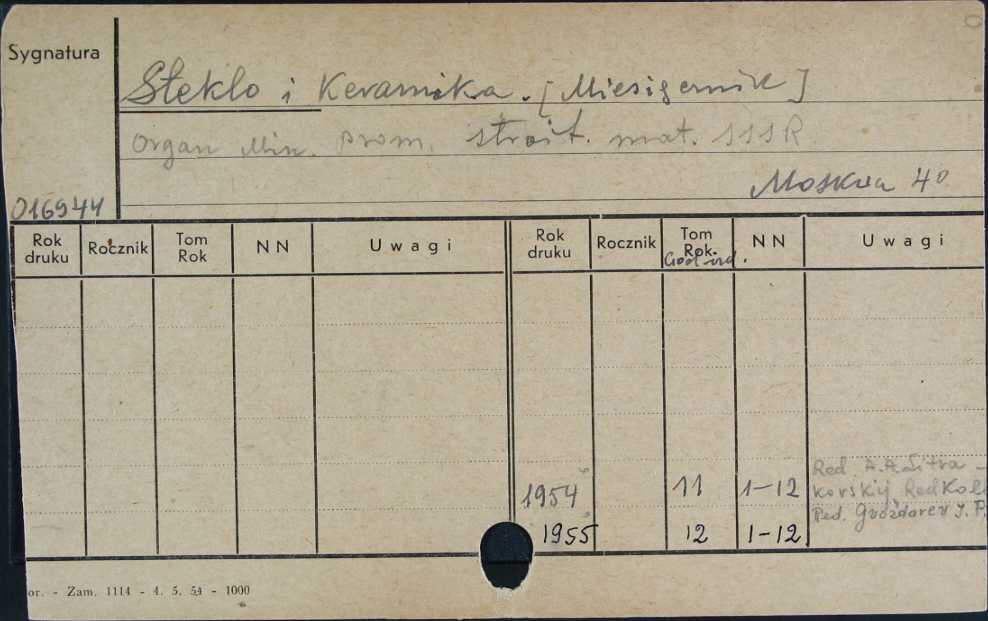 Sygnatura
Steklo i Keramika. [Miesięcznik]
Organ Min. prom. stroit. mat. SSSR
Moskwa 40
016944
Rok druku Rocznik Tom Rok NN Uwagi Rok druku Rocznik Tom Rok. God izd. NN Uwagi
Red. A.A.
1954 11 1-12 korskij, RedKol.
Red. Gvozdarev J. P.
1955 12 1-12
or. - Zam. 1114 - 4. 5. 54 - 1000